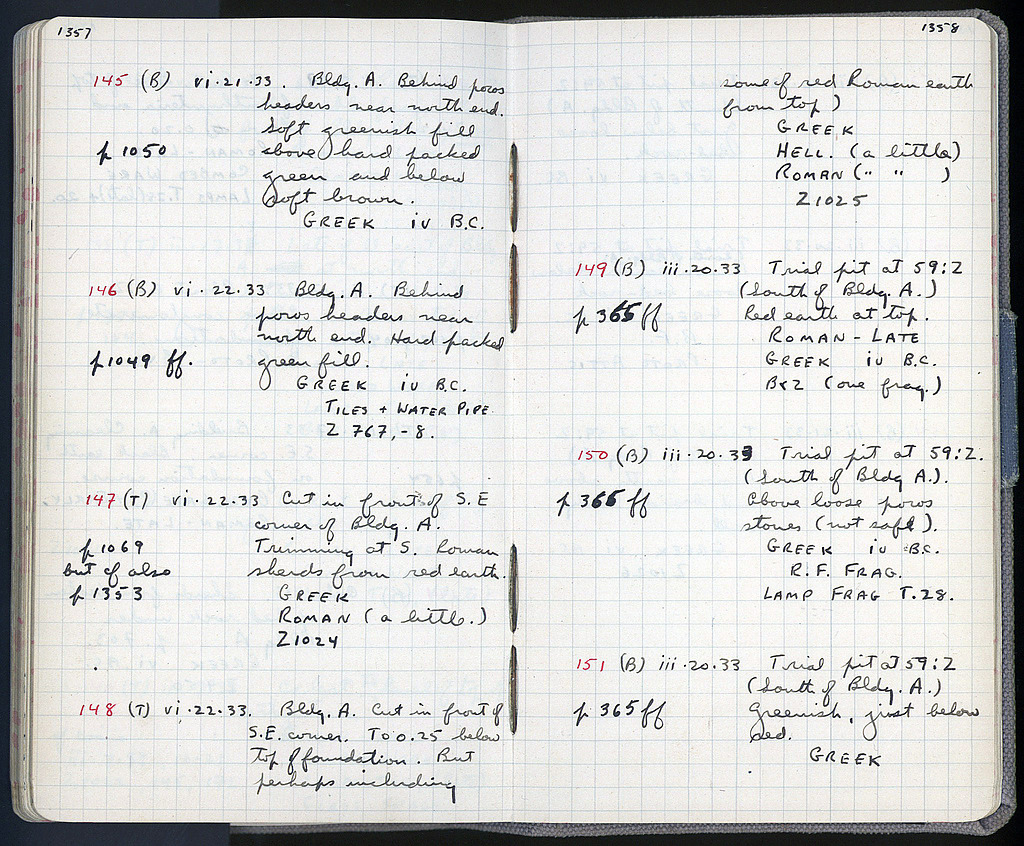 1357
145 (B) vi·21·33. Bldg. A. Behind poros
headers near north end.
Soft greenish fill
p 1050 above hard packed
green and below
soft brown.
GREEK iv B.C.
146 (B) vi·22·33 Bldg. A. Behind
poros headers near
north end. Hard packed
p 1049 ff. green fill.
GREEK iv B.C.
TILES + WATER PIPE
Z 767,-8.
147 (T) vi·22·33 Cut in front of S.E
corner of Bldg. A.
p 1069 Trimming at S. Roman
but cf also sherds from red earth.
p 1353 GREEK
ROMAN (a little.)
Z1024
148 (T) vi·22·33. Bldg. A. Cut in front of
S.E. corner. To 0.25 below
top of foundation. But
perhaps including
1358
some of red Roman earth
from top)
GREEK
HELL. (a little)
ROMAN (" " )
Z1025
149 (B) iii·20·33 Trial pit at 59:Z
(South of Bldg. A.)
p 365 ff Red earth at top.
ROMAN - LATE
GREEK iv B.C.
B&Z (one frag.)
150 (B) iii·20·33 Trial pit at 59:Z.
(South of Bldg A.).
p 365 ff Above loose poros
stones (not safe).
GREEK iv B.C.
R.F. FRAG.
LAMP FRAG T.28.
151 (B) iii·20·33 Trial pit at 59:Z
(South of Bldg. A.)
p 365 ff Greenish, just below
red.
GREEK